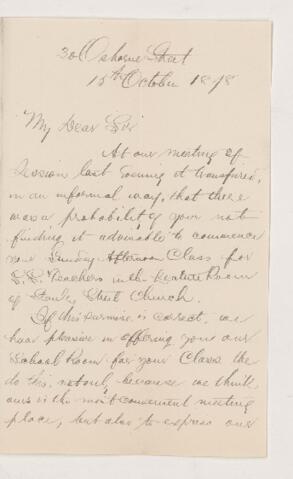 30 Osborne Street
15th October 1878
My Dear Sir
At our meeting of
Session last evening it transpired,
in an informal way, that there
was a probability of your not
finding it advisable to commence
your Sunday Afternoon Class for
S.S. Teachers in the Lecture Room
of Street Church.
If this surmise is correct, we
have pleasure in offering you our
School Room for your Class. We
do this, not only because we think
ours is the most convenient meeting
place, but also to express our